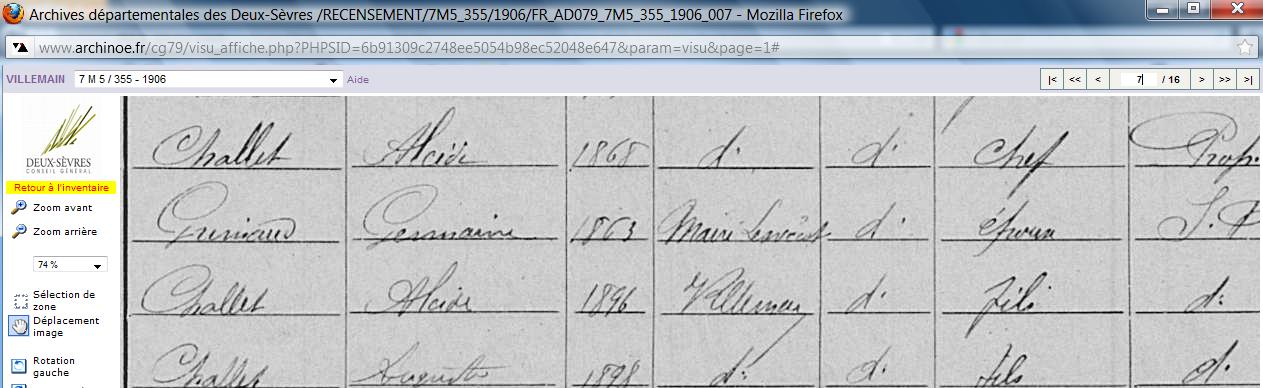 Archives départementales des Deux-Sèvres /RECENSEMENT/7M5_355/1906/FR_AD079_7M5_355_1906_007 - Mozilla Firefox
www.archinoe.fr/cg79/visu_affiche.php?PHPSID=6b91309c2748ee5054b98ec52048e647&param=visu&page=1#
VILLEMAIN 7 M 5 / 355 - 1906 Aide |< << < 7 / 16 > >> >|
DEUX-SÈVRES
CONSEIL GÉNÉRAL
Retour à l'inventaire
Zoom avant
Zoom arrière
74 %
Sélection de
zone
Déplacement
image
Rotation
gauche
Challet Alcide 1868 d° d° chef Prop.
Germaine 1863 d° épouse S. P
Challet Alcide 1896 Villemain d° fils d°
Challet Auguste 1898 d° d° fils d°